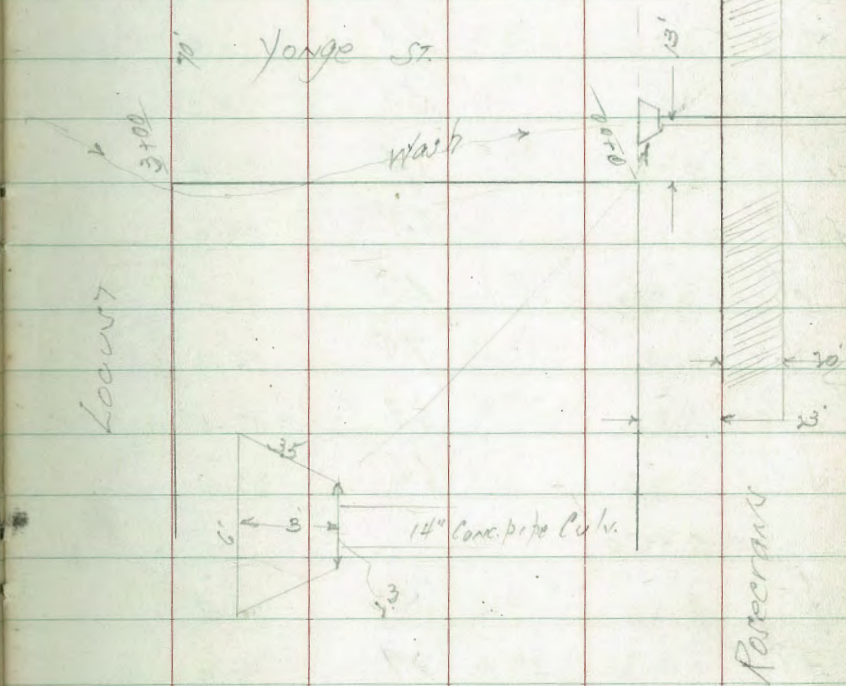 70'
Yonge St.
13'
3+00
Wash
0+00
Locust
3.5
6'
3'
14" Conc. pipe Culv.
2.3
Rosecrans